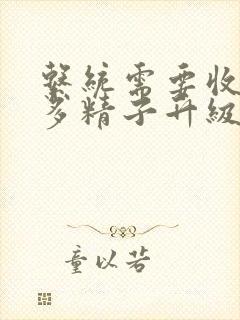 系統需要收
多精子升級
童以若